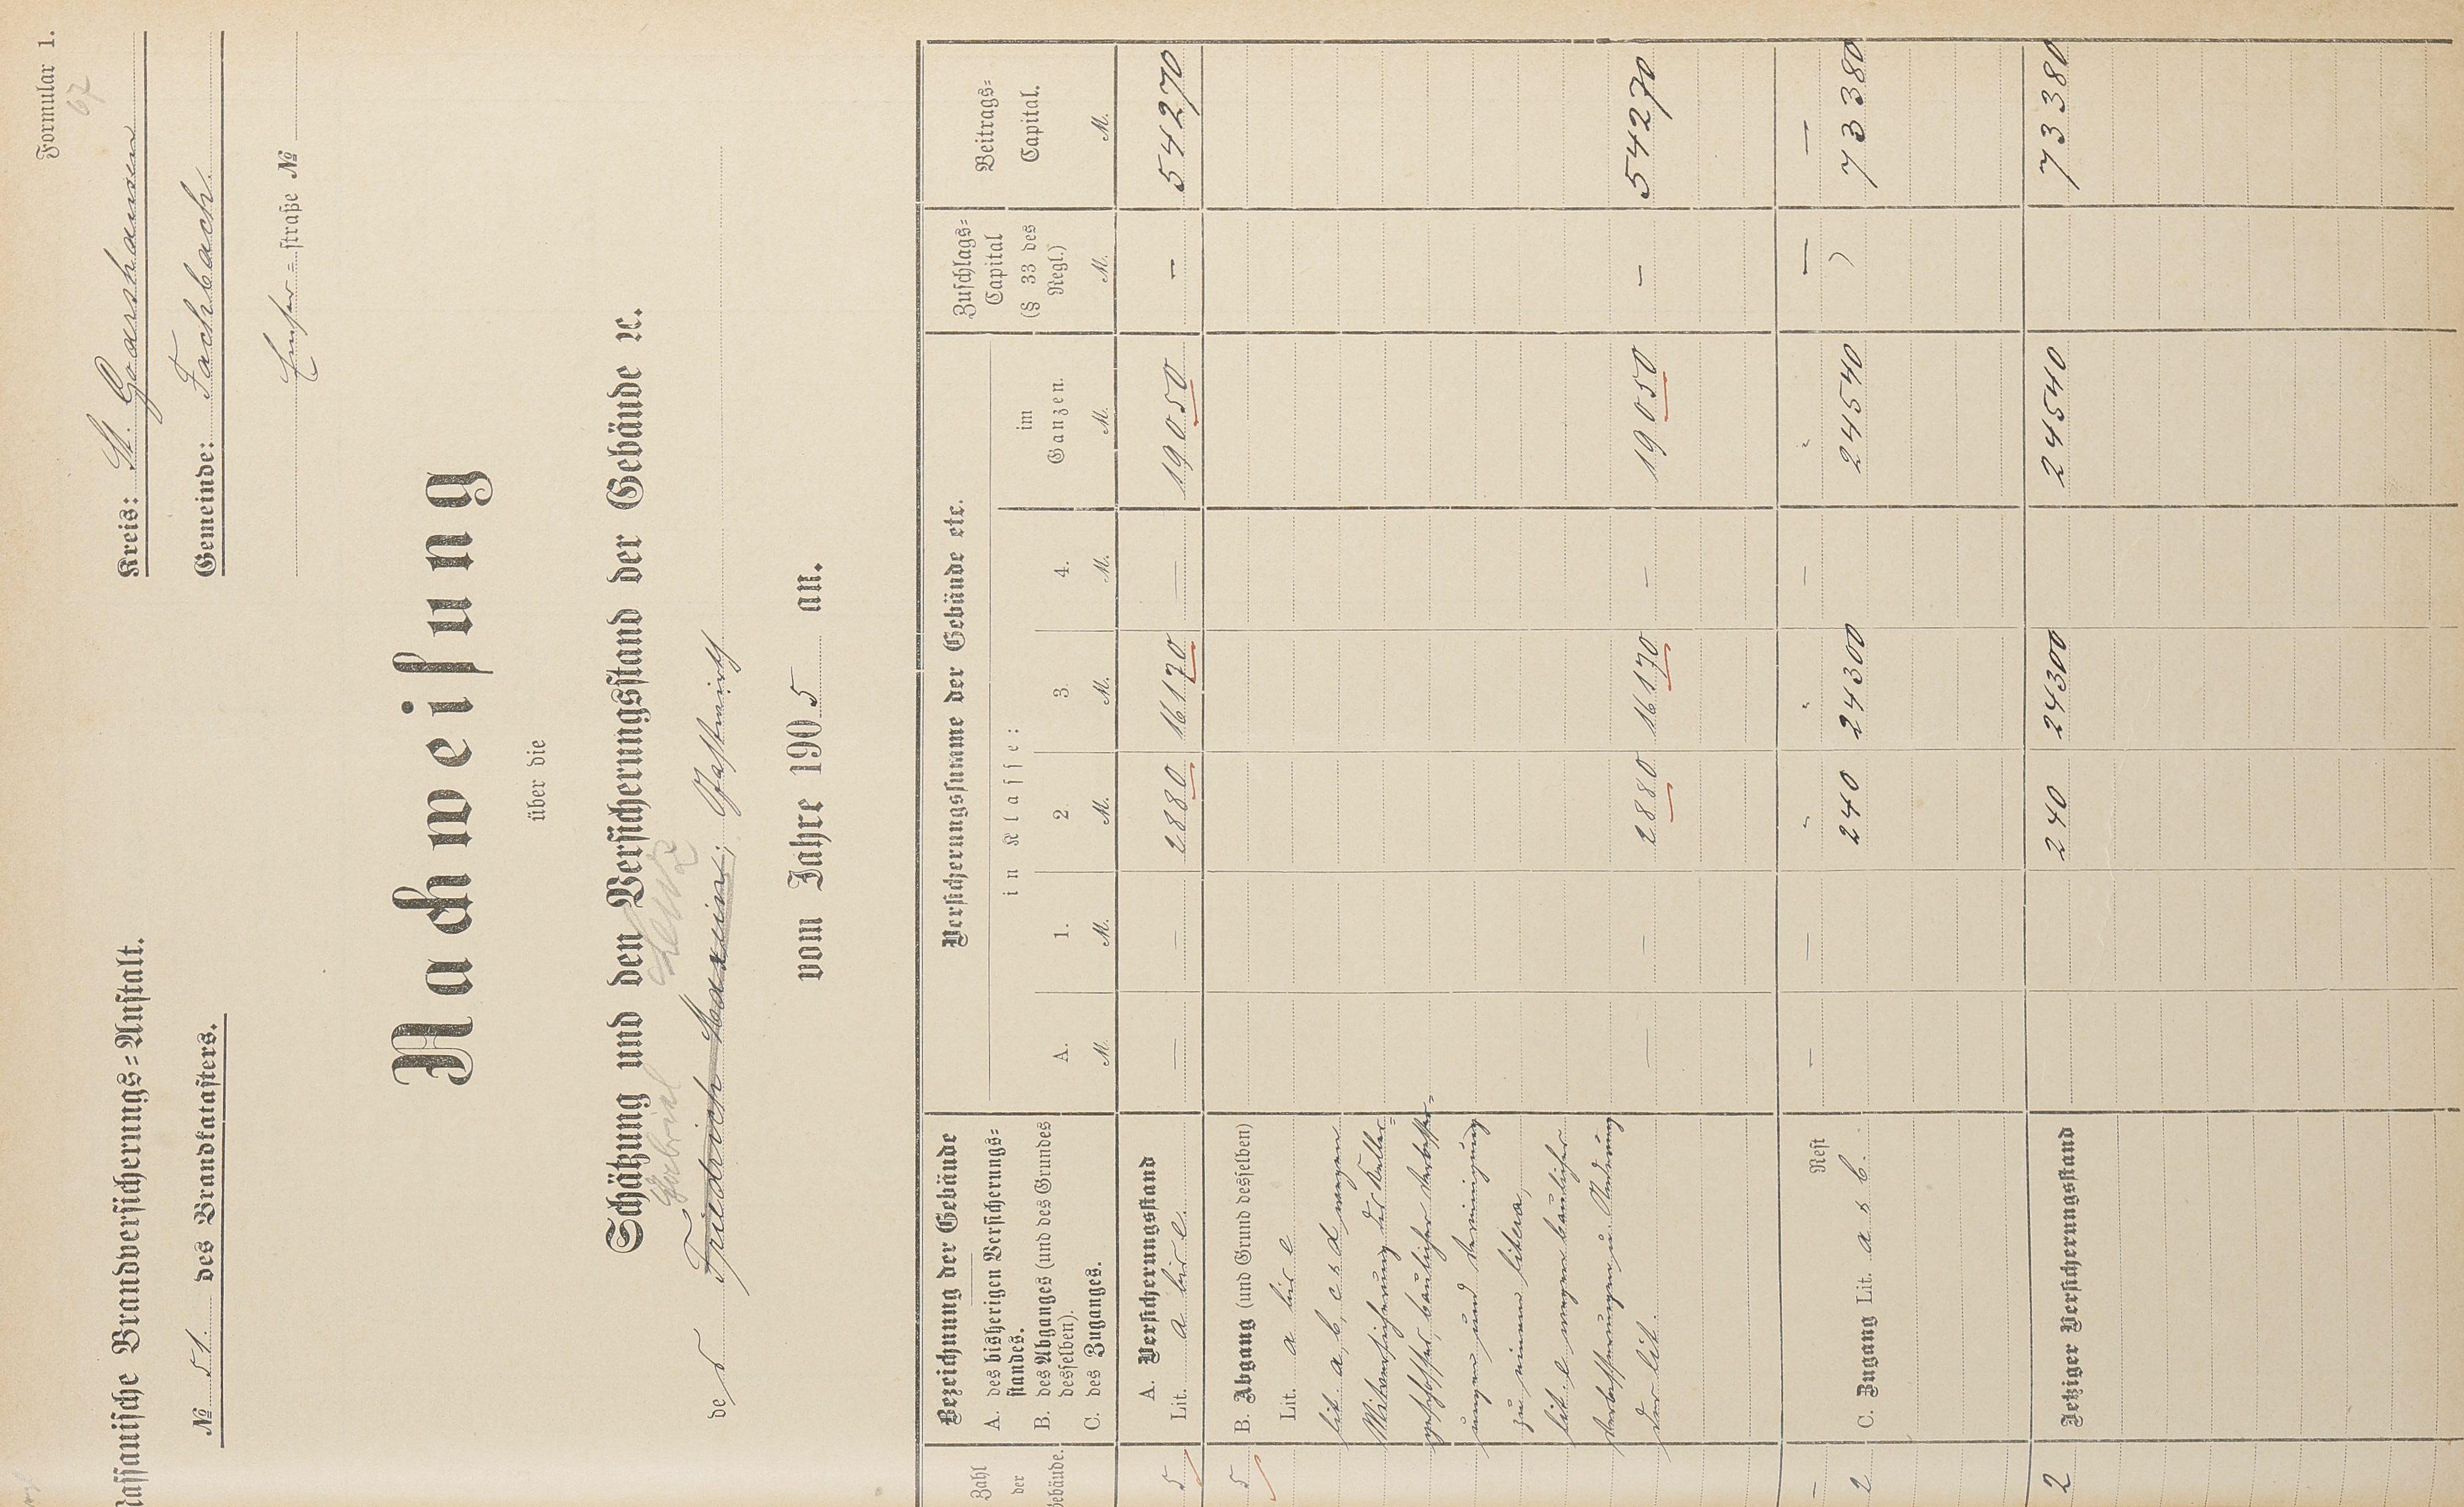 Formular 1.
67
Nassauische Brandversicherungs=Anstalt.
Kreis: St. Goarshausen
№ 51. des Brandkatasters.
Gemeinde: Fachbach.
Emser=straße №
Nachweisung
über die
Schätzung und den Versicherungsstand der Gebäude ꝛc.
des Friedrich Maxein, Gastwirth
vom Jahre 1905 an.
Zahl der Gebäude.
Bezeichnung der Gebäude
A. des bisherigen Versicherungs=
standes.
B. des Abganges (und des Grundes
desselben).
C. des Zuganges.
Versicherungssumme der Gebäude etc.
in Klasse:
A. 1. 2. 3. 4.
im
Ganzen.
Zuschlags=
Capital
(§ 33 des
Regl.)
Beitrags=
Capital.
M. M. M. M. M. M. M. M.
A. Versicherungsstand
5 Lit. a bis e. — — 2880 16170 — 19050 — 54270
5 B. Abgang (und Grund desselben)
Lit. a bis e
lit. a, b, c & d wegen
Mitversicherung der Keller=
geschosse, baulicher Verbesser=
ungen und Vereinigung
zu einem litera,
lit. e wegen baulicher
Verbesserungen u. Änderung
der lit. — — 2880 16170 — 19050 — 54270
— Rest — — " " — " — —
2 C. Zugang Lit. a & b. 240 24300 24540 73380
2 Jetziger Versicherungsstand 240 24300 24540 73380